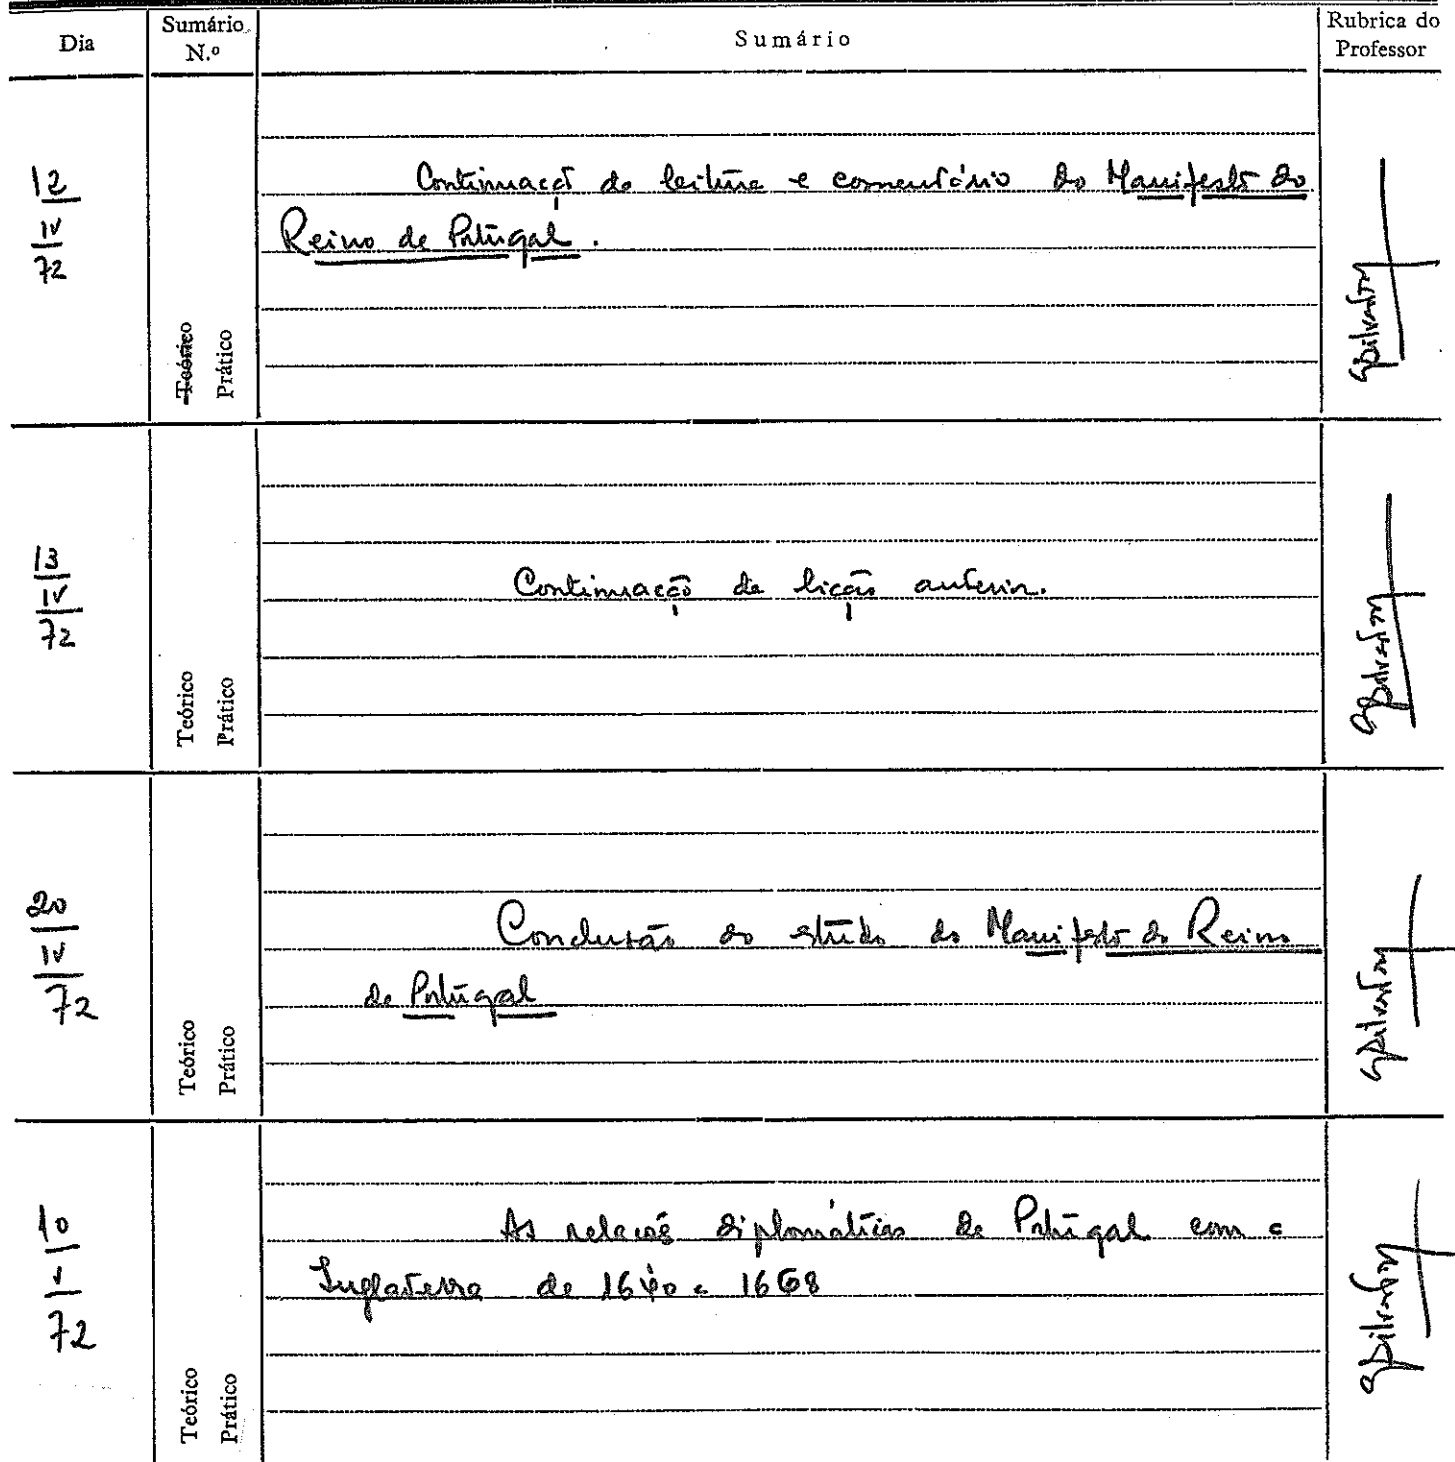 Dia
Sumário N.º
Sumário
Rubrica do Professor
12
IV
72
Teórico
Prático
Continuação da leitura e comentário do Manifesto do
Reino de Portugal.
13
IV
72
Teórico
Prático
Continuação da lição anterior.
20
IV
72
Teórico
Prático
Conclusão do estudo do Manifesto do Reino
de Portugal
10
V
72
Teórico
Prático
As relações diplomáticas de Portugal com a
Inglaterra de 1640 a 1668